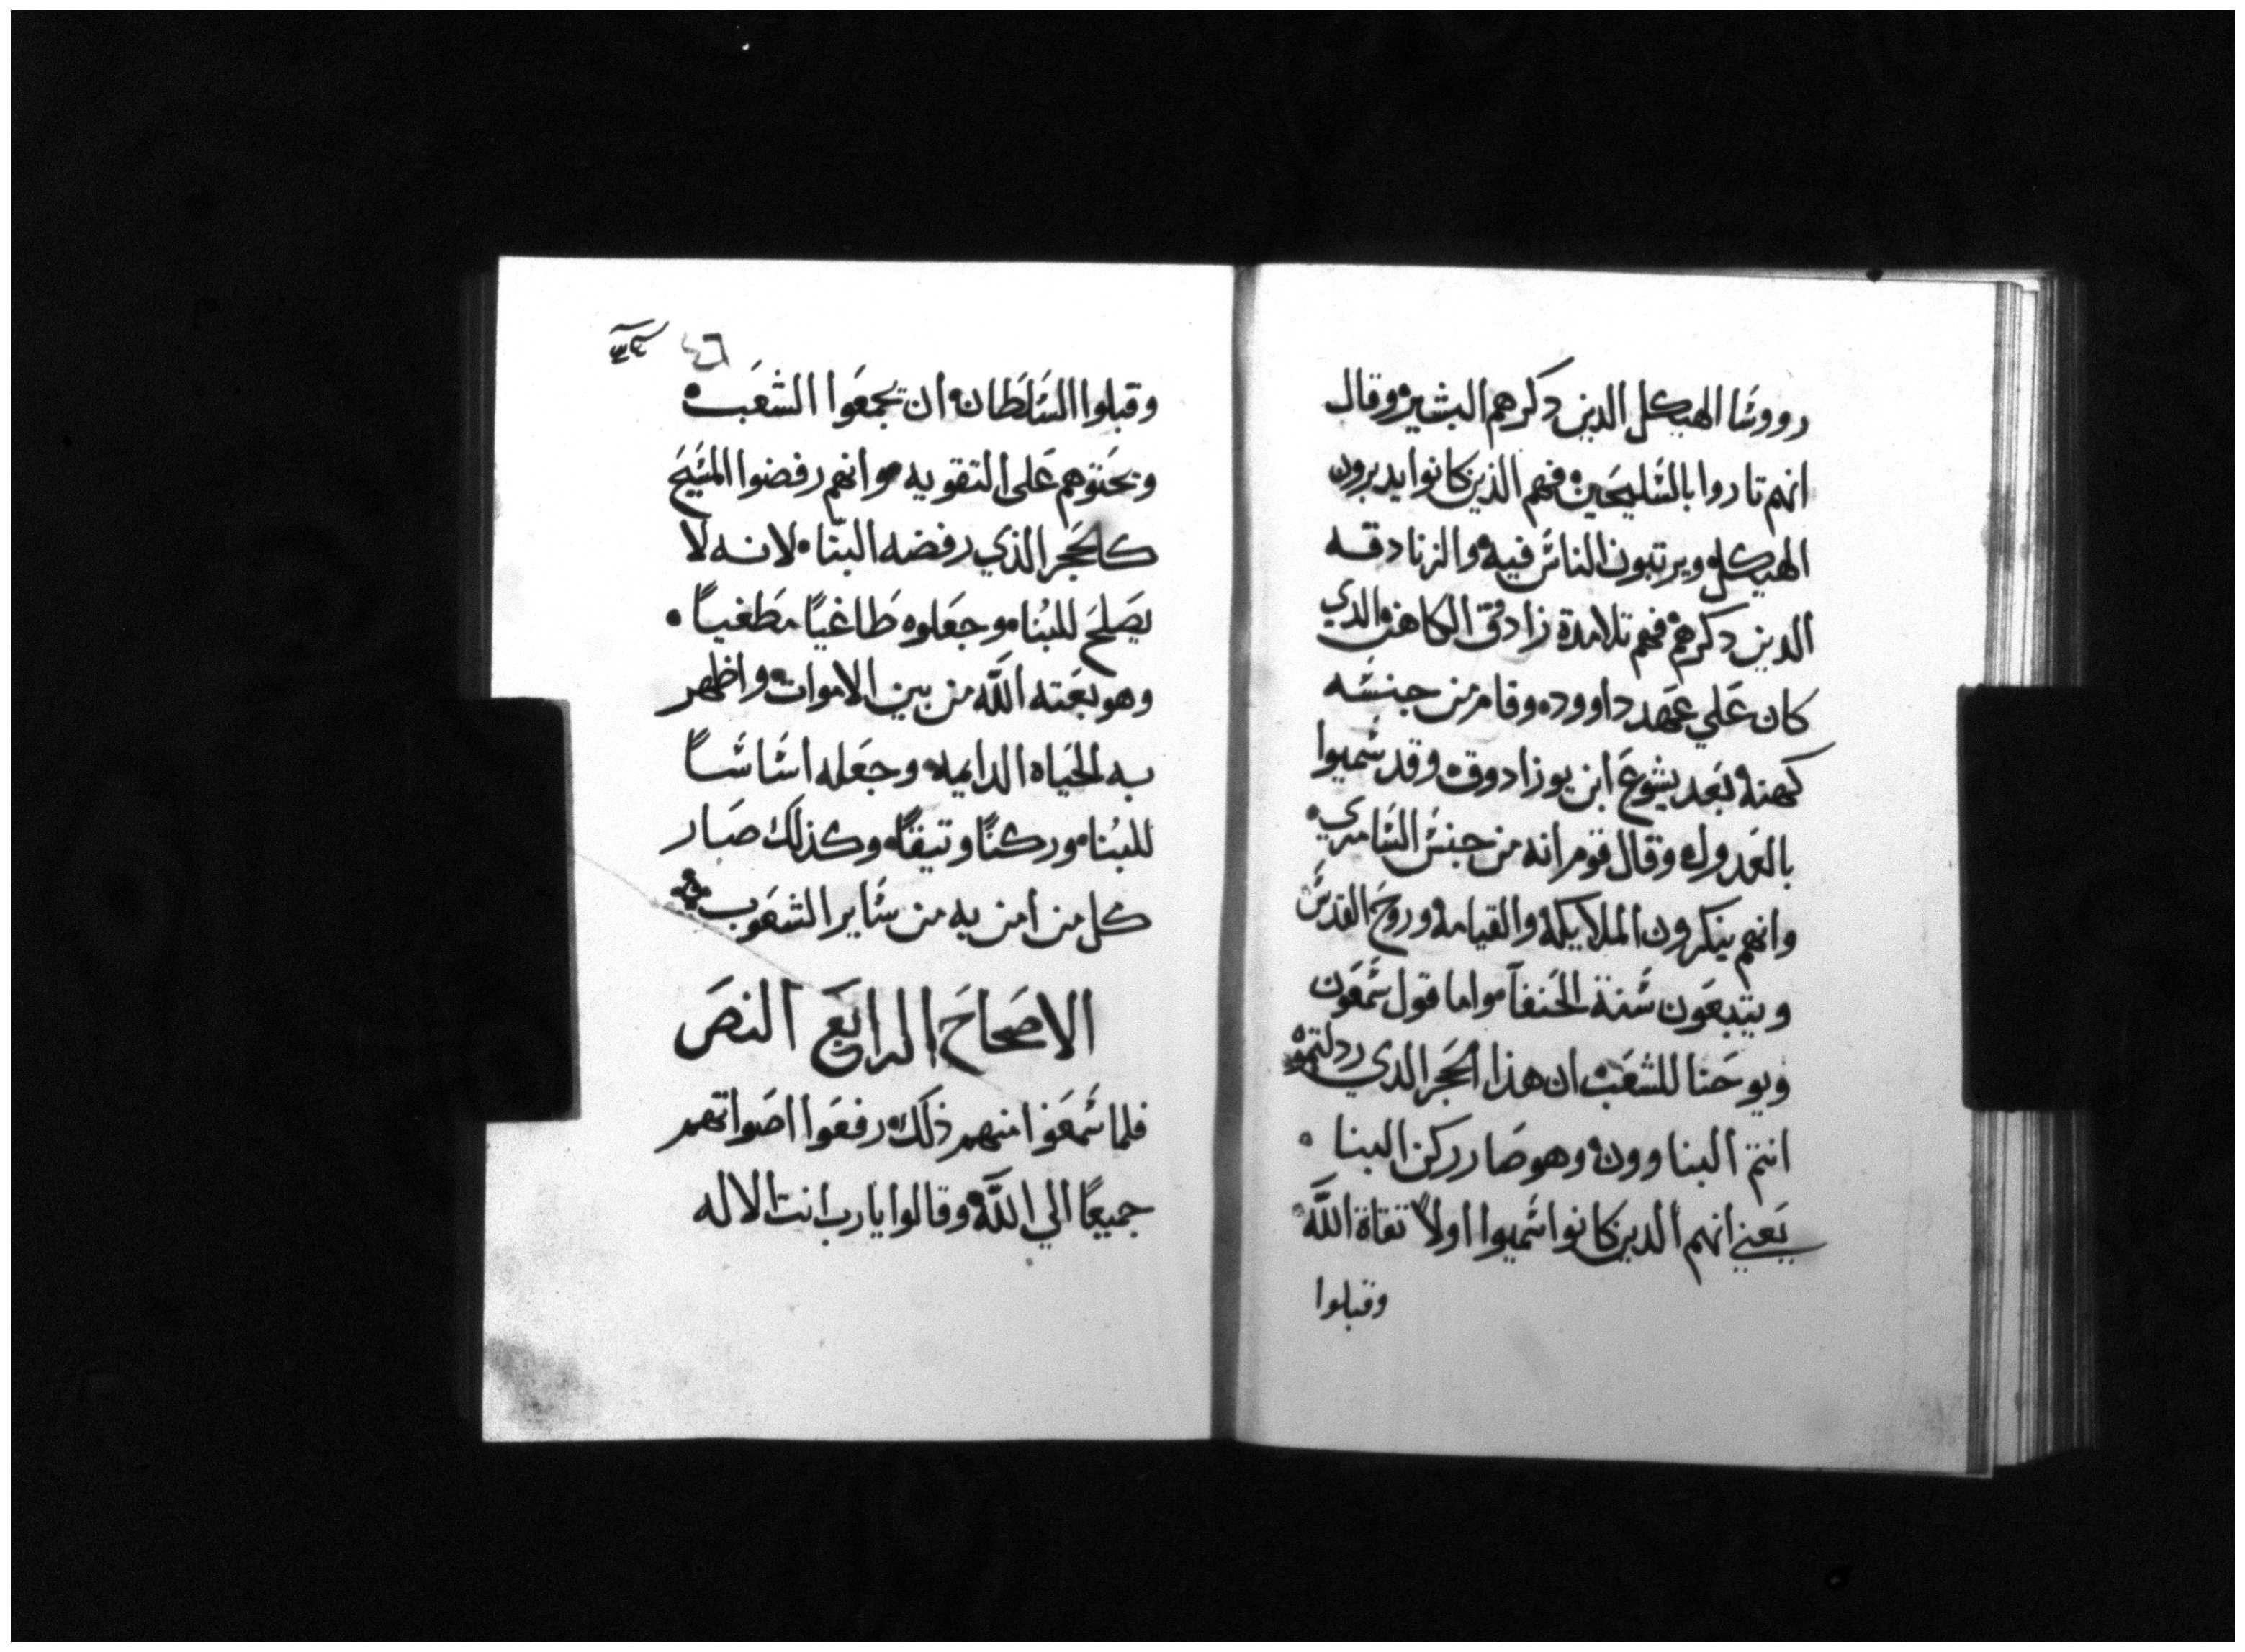 رووسا الهيكل الدين دكرهم البشير وقال
انهم تاروا بالسليحين فهم الذين كانوا يدبرون
الهيكل ويرتبون الناس فيه والزنادقه
الدين دكرهم فهم تلامدة زادوق الكاهن الدي
كان علي عهد داوود وقام من جنسه
كهنه بعد يشوع ابن يوزادوق وقد سميوا
بالعدول وقال قوم انه من جنس السامري
وانهم ينكرون الملايكه والقيامه وروح القدس
ويتبعون سنة الحنفآ واما قول سمعون
ويوحنا للشعب ان هذا الحجر الدي ردلتموه
انتم البناوون وهو صار ركن البنا
يعني انهم الدين كانوا سميوا اولاً تقاة الله
وقبلوا
٤٦
وقبلوا السلطان ان تجمعوا الشعب
وتحتوهم على التقويه وانهم رفضوا المسيح
كالحجر الذي رفضه البنّا لانه لا
يصلح للبُنا وجعلوه طاغياً مطغياً
وهو بعته الله من بين الاموات واظهر
به الحياه الدايمه وجعله اساساً
للبُنا وركناً وتيقاً وكذلك صار
كل من امن به من ساير الشعوب
الاصحاح الرابع النص
فلما سمعوا منهم ذلك رفعوا اصواتهم
جميعاً الي الله وقالوا يارب انت الاله